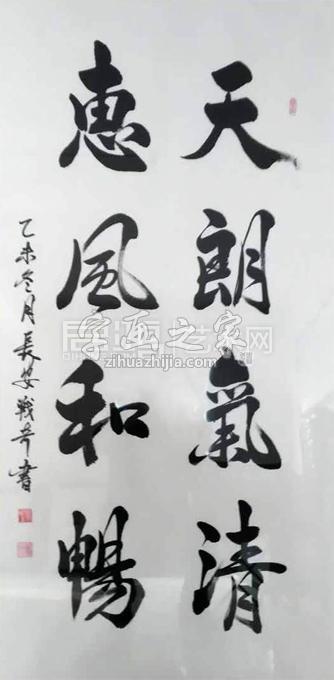 天朗氣清
惠風和暢
乙未冬月長安戰奇書
字画之家
zihuazhijia.com